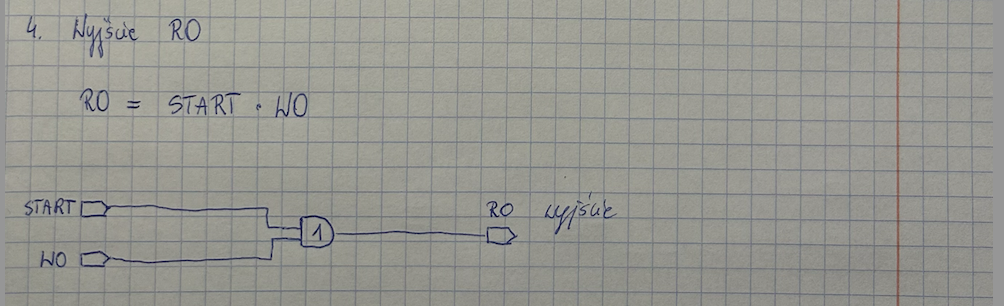 4. Wyjście RO
RO = START · WO
START
RO wyjście
1
WO